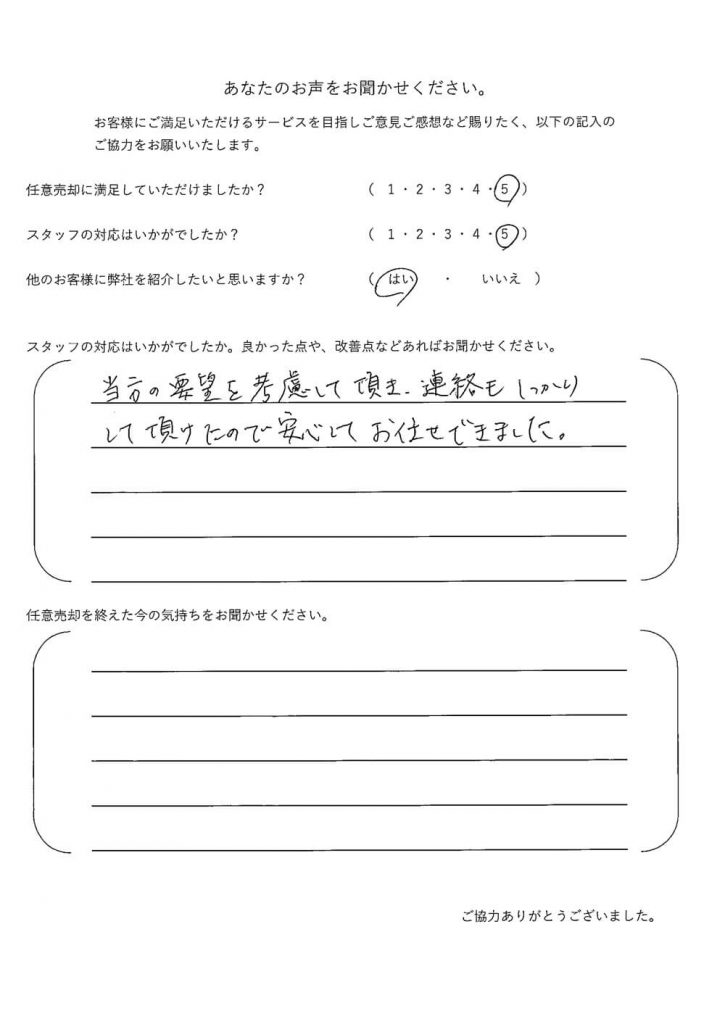 あなたのお声をお聞かせください。
お客様にご満足いただけるサービスを目指しご意見ご感想など賜りたく、以下の記入の
ご協力をお願いいたします。
任意売却に満足していただけましたか? ( 1・2・3・4・5 )
スタッフの対応はいかがでしたか? ( 1・2・3・4・5 )
他のお客様に弊社を紹介したいと思いますか? ( はい ・ いいえ )
スタッフの対応はいかがでしたか。良かった点や、改善点などあればお聞かせください。
当方の要望を考慮して頂き、連絡もしっかり
して頂けたので安心してお任せできました。
任意売却を終えた今の気持ちをお聞かせください。
ご協力ありがとうございました。